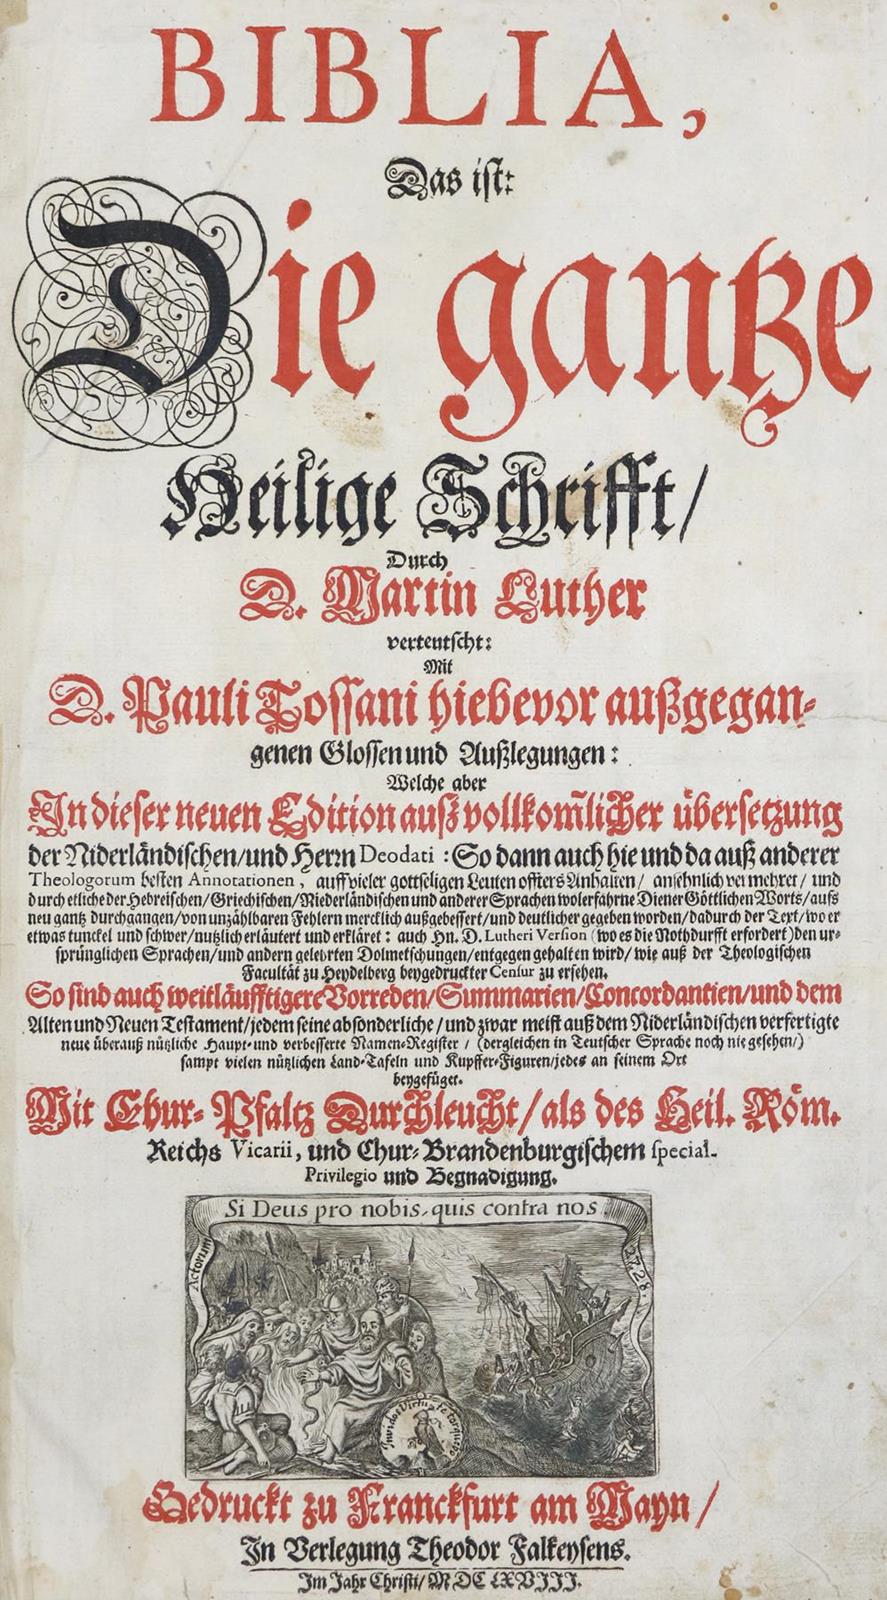 BIBLIA,
Das ist:
Die gantze
Heilige Schrifft/
Durch
D. Martin Luther
verteutscht:
Mit
D. Pauli Tossani hiebevor außgegan-
genen Glossen und Außlegungen:
Welche aber
In dieser neuen Edition auß vollkom̃licher übersetzung
der Niderländischen/und Herrn Deodati: So dann auch hie und da auß anderer
Theologorum besten Annotationen, auff vieler gottseligen Leuten öffters Anhalten/ ansehnlich vermehret/ und
durch etliche der Hebreischen/Griechischen/Niederländischen und anderer Sprachen wolerfahrne Diener Göttlichen Worts/aufs
neu gantz durchgangen/von unzählbaren Fehlern mercklich außgebessert/und deutlicher gegeben worden/dadurch der Text/wo er
etwas tunckel und schwer/nutzlich erläutert und erkläret: auch Hn. D. Lutheri Version (wo es die Nothdurfft erfordert) den ur-
sprünglichen Sprachen/und andern gelehrten Dolmetschungen/entgegen gehalten wird/ wie auß der Theologischen
Facultät zu Heydelberg beygedruckter Censur zu ersehen.
So sind auch weitläufftigere Vorreden/Summarien/Concordantien/und dem
Alten und Neuen Testament/jedem seine absonderliche/und zwar meist auß dem Niderländischen verfertigte
neue überauß nützliche Haupt- und verbesserte Namen-Register/ (dergleichen in Teutscher Sprache noch nie gesehen/)
sampt vielen nützlichen Land-Tafeln und Kupffer-Figuren/jedes an seinem Ort
beygefüget.
Mit Chur-Pfaltz Durchleucht/als des Heil. Röm.
Reichs Vicarii, und Chur-Brandenburgischem special-
Privilegio und Begnadigung.
Si Deus pro nobis, quis contra nos.
Actorum
27.28.
Invidos Virtute torqueo
Gedruckt zu Franckfurt am Mayn/
In Verlegung Theodor Falkeysens.
Im Jahr Christi/ MDCLXVIII.